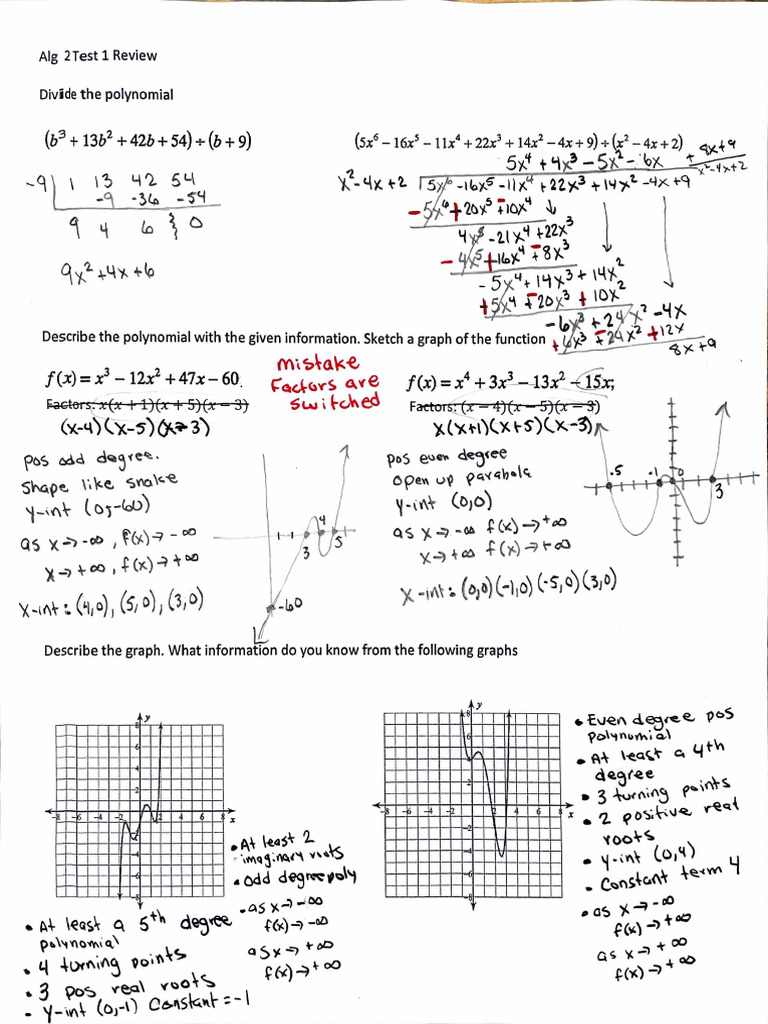 Alg 2Test 1 Review
Divide the polynomial
(b³ + 13b² + 42b + 54) ÷ (b + 9)
-9 | 1 13 42 54
-9 -36 -54
9 4 6 } 0
9x² + 4x + 6
(5x⁶ – 16x⁵ – 11x⁴ + 22x³ + 14x² – 4x + 9) ÷ (x² – 4x + 2)
5x⁴ + 4x³ - 5x² - 6x + 8x+9 / x²-4x+2
x² - 4x + 2 | 5x⁶ - 16x⁵ - 11x⁴ + 22x³ + 14x² - 4x + 9
- 5x⁶ + 20x⁵ - 10x⁴
4x⁵ - 21x⁴ + 22x³
- 4x⁵ + 16x⁴ - 8x³
- 5x⁴ + 14x³ + 14x²
+ 5x⁴ - 20x³ + 10x²
- 6x³ + 24x² - 4x
+ 6x³ - 24x² + 12x
8x + 9
Describe the polynomial with the given information. Sketch a graph of the function
mistake
Factors are
switched
f(x) = x³ – 12x² + 47x – 60.
Factors: x(x + 1)(x + 5)(x – 3)
(x-4)(x-5)(x-3)
pos odd degree.
Shape like snake
y-int (0,-60)
as x→-∞, f(x)→-∞
x→+∞, f(x)→+∞
x-int: (4,0), (5,0), (3,0)
4
3
5
-60
f(x) = x⁴ + 3x³ – 13x² – 15x;
Factors: (x – 4)(x – 5)(x – 3)
x(x+1)(x+5)(x-3)
pos even degree
open up parabola
y-int (0,0)
as x→-∞ f(x)→+∞
x→+∞ f(x)→+∞
x-int: (0,0)(-1,0)(-5,0)(3,0)
-5 -1 0
3
Describe the graph. What information do you know from the following graphs
y
8
6
4
2
-8 -6 -4 -2 2 4 6 8 x
-2
-4
-6
-8
• At least 2
imaginary roots
• Odd degree poly
• as x→-∞
f(x)→-∞
as x→+∞
f(x)→+∞
• At least a 5th degree
polynomial
• 4 turning points
• 3 pos real roots
- y-int (0,-1) Constant = -1
y
8
6
2
-8 -6 -4 -2 2 4 6 8 x
-2
-4
-6
-8
• Even degree pos
polynomial
• At least a 4th
degree
• 3 turning points
• 2 positive real
roots
• y-int (0,4)
• Constant term 4
• as x→-∞
f(x)→+∞
as x→+∞
f(x)→+∞